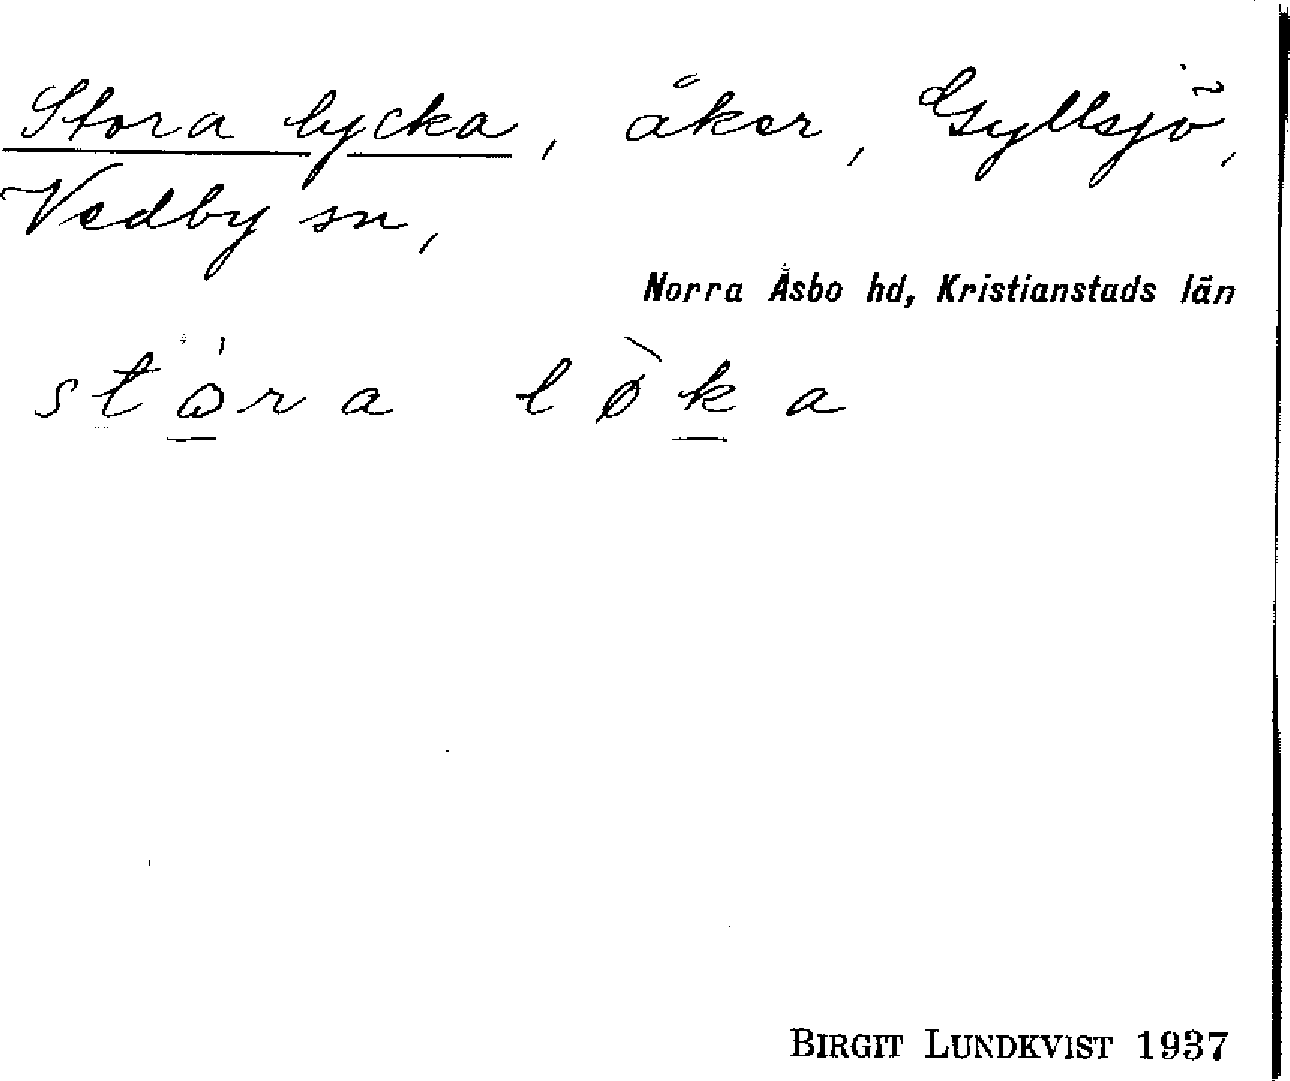 Stora lycka, åker, Gyllsjö,
Vedby sn,
Norra Åsbo hd, Kristianstads län
stɷ́ra lø̀ka
BIRGIT LUNDKVIST 1937